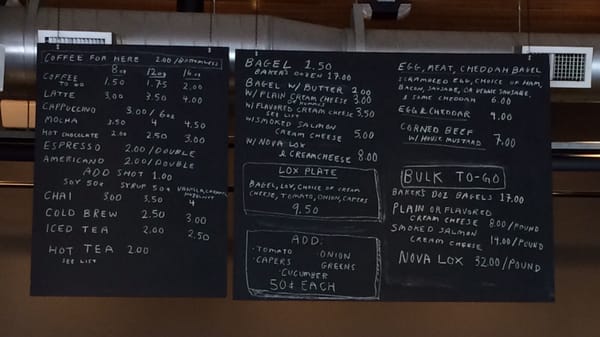 COFFEE FOR HERE 2.00/BOTTOMLESS
8oz 12oz 16oz
COFFEE TO GO 1.50 1.75 2.00
LATTE 3.00 3.50 4.00
CAPPUCCINO 3.00/6oz
MOCHA 3.50 4 4.50
HOT CHOCOLATE 2.00 2.50 3.00
ESPRESSO 2.00/DOUBLE
AMERICANO 2.00/DOUBLE
ADD SHOT 1.00
SOY 50¢ SYRUP 50¢ VANILLA, CARAMEL, HAZELNUT
CHAI 3.00 3.50 4
COLD BREW 2.50 3.00
ICED TEA 2.00 2.50
HOT TEA 2.00
SEE LIST
BAGEL 1.50
BAKER'S DOZEN 17.00
BAGEL W/ BUTTER 2.00
W/ PLAIN CREAM CHEESE 3.00
OR HUMMUS
W/ FLAVORED CREAM CHEESE 3.50
SEE LIST
W/ SMOKED SALMON
CREAM CHEESE 5.00
W/ NOVA LOX
& CREAM CHEESE 8.00
LOX PLATE
BAGEL, LOX, CHOICE OF CREAM
CHEESE, TOMATO, ONION, CAPERS
9.50
ADD:
·TOMATO ·ONION
·CAPERS ·GREENS
·CUCUMBER
50¢ EACH
EGG, MEAT, CHEDDAR BAGEL
SCRAMBLED EGG, CHOICE OF HAM,
BACON, SAUSAGE, OR VEGGIE SAUSAGE,
& SOME CHEDDAR 6.00
EGG & CHEDDAR 4.00
CORNED BEEF
W/ HOUSE MUSTARD 7.00
BULK TO-GO
BAKER'S DOZ BAGELS 17.00
PLAIN OR FLAVORED
CREAM CHEESE 8.00/POUND
SMOKED SALMON
CREAM CHEESE 14.00/POUND
NOVA LOX 32.00/POUND